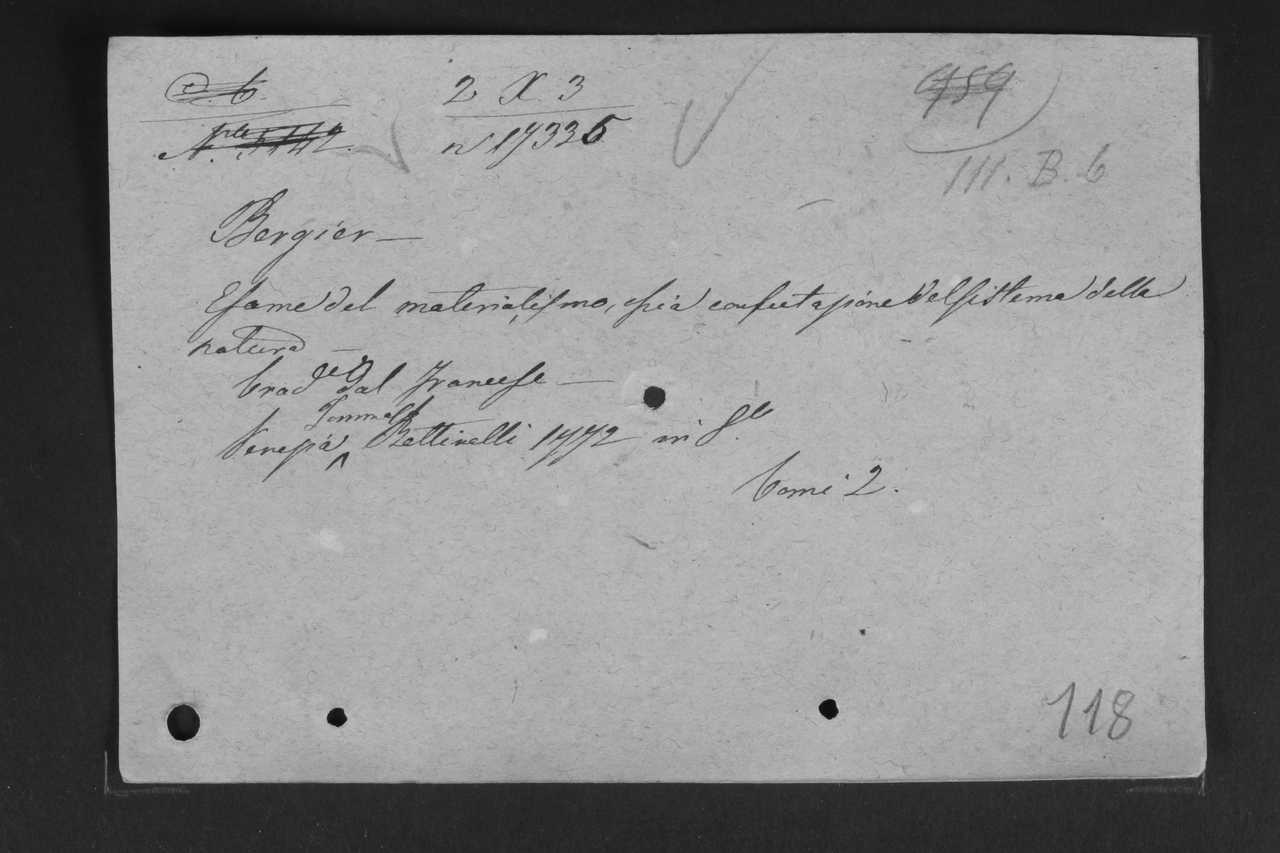 C. 6.
2 X 3
959
N. 5142.
n 17336
III. B. 6
Bergier —
Esame del materialismo, ossia confutazione del sistema della
natura —
Trad dal Francese —
Tommaso
Venezia ^ Bettinelli 1772 in 8.º
Tomi 2.
118